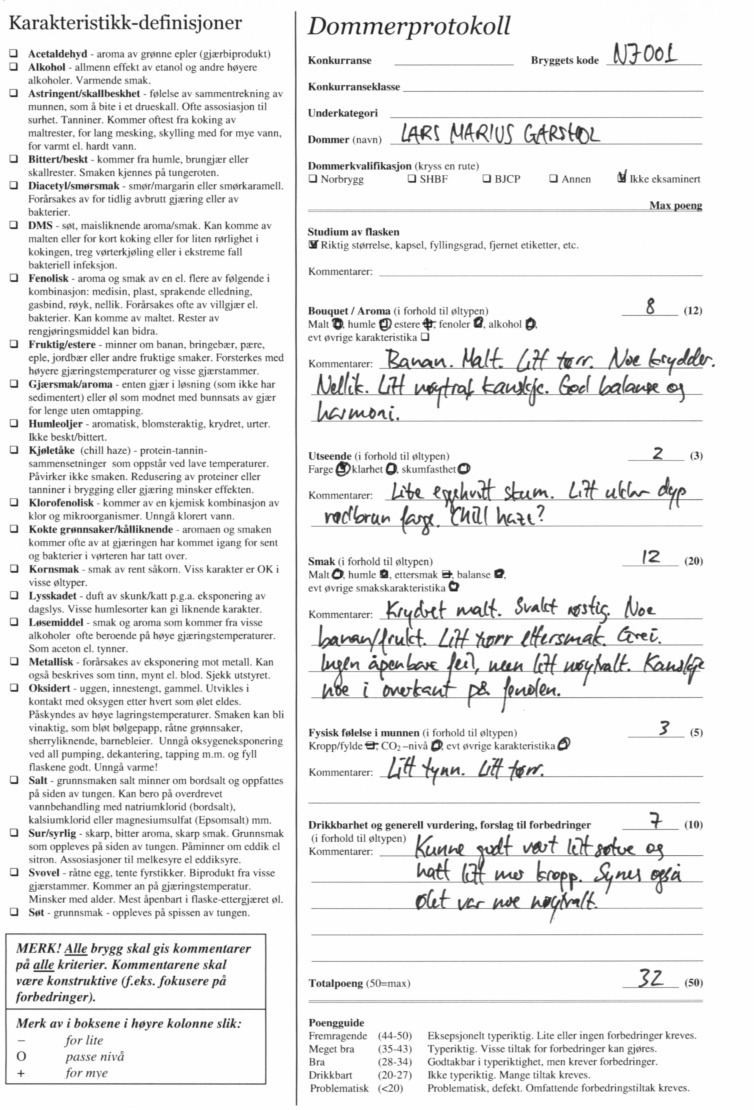 Karakteristikk-definisjoner
❑ Acetaldehyd - aroma av grønne epler (gjærbiprodukt)
❑ Alkohol - allmenn effekt av etanol og andre høyere
alkoholer. Varmende smak.
❑ Astringent/skallbeskhet - følelse av sammentrekning av
munnen, som å bite i et drueskall. Ofte assosiasjon til
surhet. Tanniner. Kommer oftest fra koking av
maltrester, for lang mesking, skylling med for mye vann,
for varmt el. hardt vann.
❑ Bittert/beskt - kommer fra humle, brungjær eller
skallrester. Smaken kjennes på tungeroten.
❑ Diacetyl/smørsmak - smør/margarin eller smørkaramell.
Forårsakes av for tidlig avbrutt gjæring eller av
bakterier.
❑ DMS - søt, maisliknende aroma/smak. Kan komme av
malten eller for kort koking eller for liten rørlighet i
kokingen, treg vørterkjøling eller i ekstreme fall
bakteriell infeksjon.
❑ Fenolisk - aroma og smak av en el. flere av følgende i
kombinasjon: medisin, plast, sprakende elledning,
gasbind, røyk, nellik. Forårsakes ofte av villgjær el.
bakterier. Kan komme av maltet. Rester av
rengjøringsmiddel kan bidra.
❑ Fruktig/estere - minner om banan, bringebær, pære,
eple, jordbær eller andre fruktige smaker. Forsterkes med
høyere gjæringstemperaturer og visse gjærstammer.
❑ Gjærsmak/aroma - enten gjær i løsning (som ikke har
sedimentert) eller øl som modnet med bunnsats av gjær
for lenge uten omtapping.
❑ Humleoljer - aromatisk, blomsteraktig, krydret, urter.
Ikke beskt/bittert.
❑ Kjøletåke (chill haze) - protein-tannin-
sammensetninger som oppstår ved lave temperaturer.
Påvirker ikke smaken. Redusering av proteiner eller
tanniner i brygging eller gjæring minsker effekten.
❑ Klorofenolisk - kommer av en kjemisk kombinasjon av
klor og mikroorganismer. Unngå klorert vann.
❑ Kokte grønnsaker/kålliknende - aromaen og smaken
kommer ofte av at gjæringen har kommet igang for sent
og bakterier i vørteren har tatt over.
❑ Kornsmak - smak av rent såkorn. Viss karakter er OK i
visse øltyper.
❑ Lysskadet - duft av skunk/katt p.g.a. eksponering av
dagslys. Visse humlesorter kan gi liknende karakter.
❑ Løsemiddel - smak og aroma som kommer fra visse
alkoholer ofte beroende på høye gjæringstemperaturer.
Som aceton el. tynner.
❑ Metallisk - forårsakes av eksponering mot metall. Kan
også beskrives som tinn, mynt el. blod. Sjekk utstyret.
❑ Oksidert - uggen, innestengt, gammel. Utvikles i
kontakt med oksygen etter hvert som ølet eldes.
Påskyndes av høye lagringstemperaturer. Smaken kan bli
vinaktig, som bløt bølgepapp, råtne grønnsaker,
sherryliknende, barnebleier. Unngå oksygeneksponering
ved all pumping, dekantering, tapping m.m. og fyll
flaskene godt. Unngå varme!
❑ Salt - grunnsmaken salt minner om bordsalt og oppfattes
på siden av tungen. Kan bero på overdrevet
vannbehandling med natriumklorid (bordsalt),
kalsiumklorid eller magnesiumsulfat (Epsomsalt) mm.
❑ Sur/syrlig - skarp, bitter aroma, skarp smak. Grunnsmak
som oppleves på siden av tungen. Påminner om eddik el
sitron. Assosiasjoner til melkesyre el eddiksyre.
❑ Svovel - råtne egg, tente fyrstikker. Biprodukt fra visse
gjærstammer. Kommer an på gjæringstemperatur.
Minsker med alder. Mest åpenbart i flaske-ettergjæret øl.
❑ Søt - grunnsmak - oppleves på spissen av tungen.
MERK! Alle brygg skal gis kommentarer
på alle kriterier. Kommentarene skal
være konstruktive (f.eks. fokusere på
forbedringer).
Merk av i boksene i høyre kolonne slik:
– for lite
O passe nivå
+ for mye
Dommerprotokoll
Konkurranse Bryggets kode N7001
Konkurranseklasse
Underkategori
Dommer (navn) LARS MARIUS GARSHOL
Dommerkvalifikasjon (kryss en rute)
❑ Norbrygg ❑ SHBF ❑ BJCP ❑ Annen ☑ Ikke eksaminert
Max poeng
Studium av flasken
☑ Riktig størrelse, kapsel, fyllingsgrad, fjernet etiketter, etc.
Kommentarer:
Bouquet / Aroma (i forhold til øltypen) 8 (12)
Malt O, humle O estere +, fenoler O, alkohol O,
evt øvrige karakteristika ❑
Kommentarer: Banan. Malt. Litt tørr. Noe krydder.
Nellik. Litt nøytral kanskje. God balanse og
harmoni.
Utseende (i forhold til øltypen) 2 (3)
Farge O klarhet O, skumfasthet O
Kommentarer: Lite eggehvitt skum. Litt uklar dyp
rødbrun farge. Chill haze?
Smak (i forhold til øltypen) 12 (20)
Malt O, humle O, ettersmak –, balanse O,
evt øvrige smakskarakteristika O
Kommentarer: Krydret malt. Svakt røstig. Noe
banan/frukt. Litt tørr ettersmak. Grei.
Ingen åpenbare feil, men litt nøytralt. Kanskje
noe i overkant på fenolen.
Fysisk følelse i munnen (i forhold til øltypen) 3 (5)
Kropp/fylde –, CO2 –nivå O, evt øvrige karakteristika O
Kommentarer: Litt tynn. Litt tørr.
Drikkbarhet og generell vurdering, forslag til forbedringer 7 (10)
(i forhold til øltypen)
Kommentarer: Kunne godt vært litt søtere og
hatt litt mer kropp. Synes også
ølet var noe nøytralt.
Totalpoeng (50=max) 32 (50)
Poengguide
Fremragende (44-50) Eksepsjonelt typeriktig. Lite eller ingen forbedringer kreves.
Meget bra (35-43) Typeriktig. Visse tiltak for forbedringer kan gjøres.
Bra (28-34) Godtakbar i typeriktighet, men krever forbedringer.
Drikkbart (20-27) Ikke typeriktig. Mange tiltak kreves.
Problematisk (<20) Problematisk, defekt. Omfattende forbedringstiltak kreves.